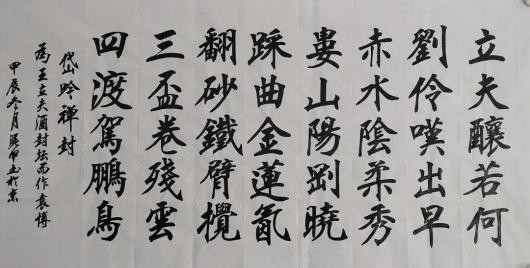 立夫釀若何
劉伶嘆出早
赤水陰柔秀
婁山陽剛曉
踩曲金蓮氤
翻砂鐵臂攪
三盃卷殘雲
四渡駕鵬鳥
岱吟禅封
為王立夫酒封坛而作袁博
甲辰冬月 于京